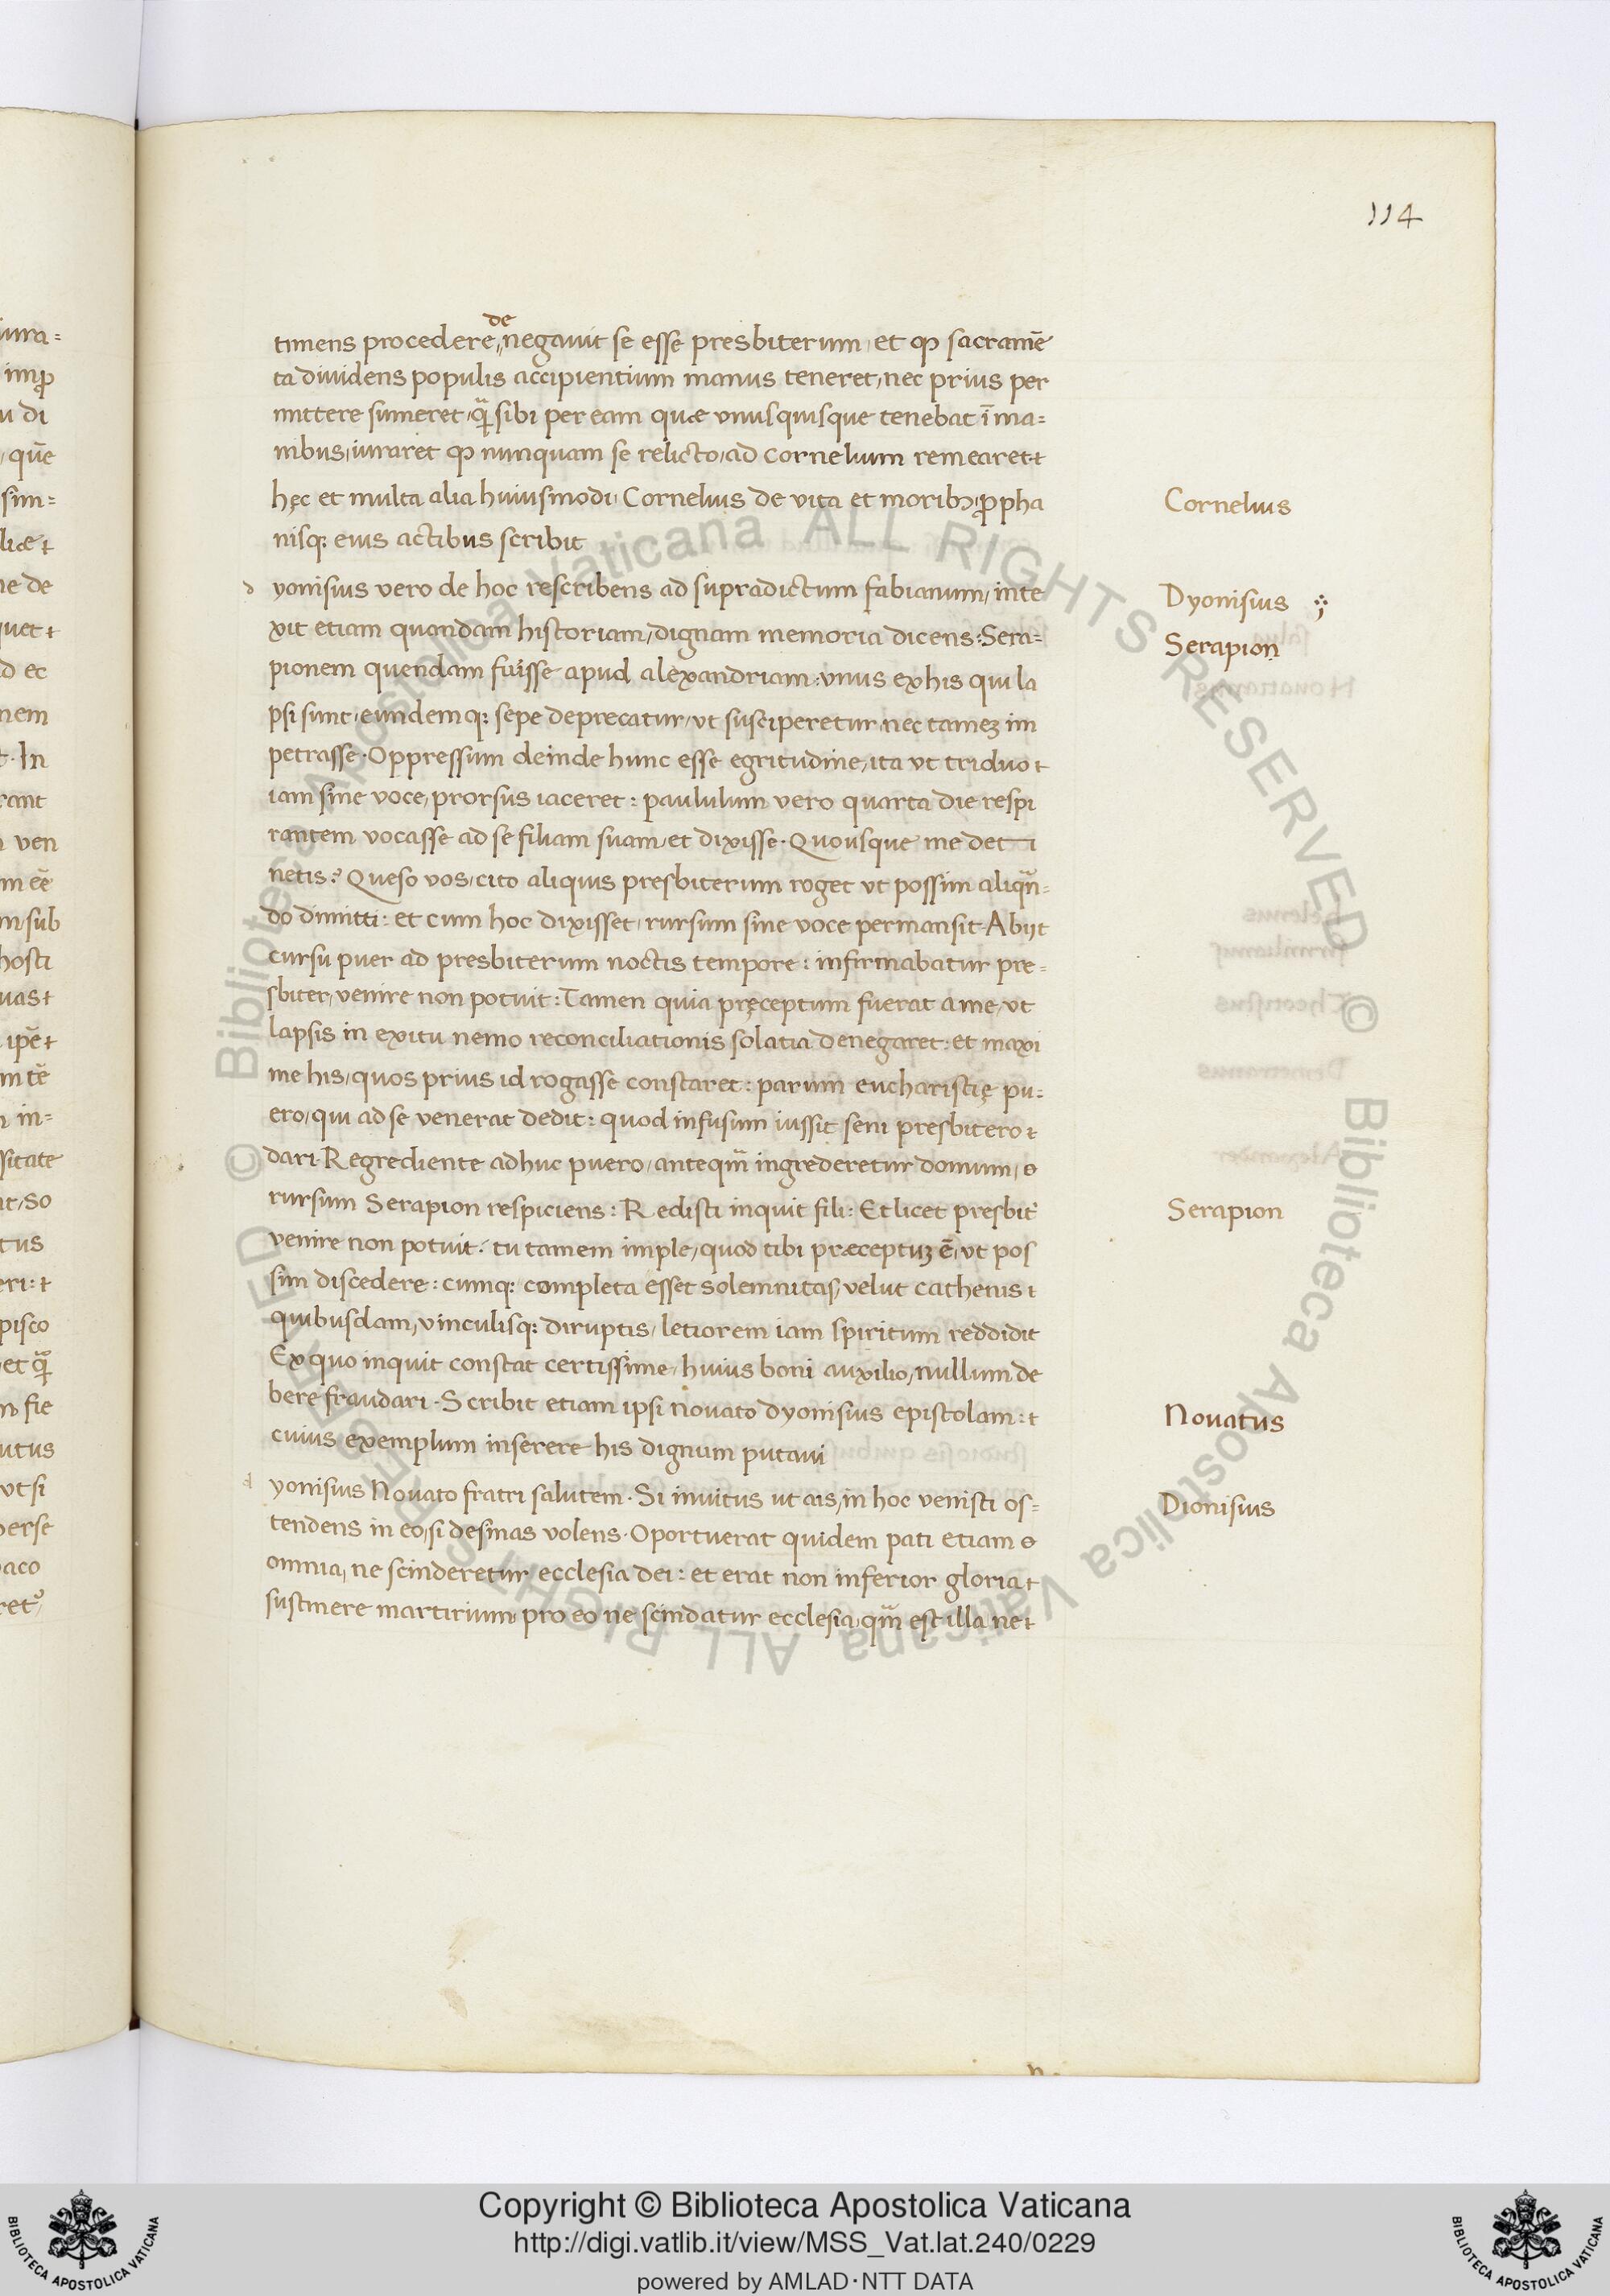 114
timens procedere, denegauit se esse presbiterum, et qꝫ sacramē
ta diuidens populis accipientium manus teneret, nec prius per
mittere sumeret, q̃ sibi per eam quæ vnusquisque tenebat ī ma=
nibus, iuraret qꝫ nunquam se relicto, ad cornelium remearet
hęc et multa alia huiusmodi, Cornelius de vita et moribꝫ, ꝓpha
nisqꝫ eius actibus scribit
Cornelius
d yonisius vero de hoc rescribens ad supradictum fabianum, inte
xit etiam quandam historiam, dignam memoria dicens: Sera=
pionem quendam fuisse apud alexandriam: vnus ex his qui la
psi sunt, eundemqꝫ sepe deprecatur, vt susciperetur, nec tameꝫ im
petrasse. Oppressum deinde hunc esse egritudine, ita vt triduo
iam sine voce, prorsus iaceret: paululum vero quarta die respi
rantem vocasse ad se filiam suam, et dixisse. Quousque me deti
netis? Queso vos, cito aliquis presbiterum roget vt possim aliqñ=
do dimitti: et cum hoc dixisset, rursum sine voce permansit. Abijt
cursu puer ad presbiterum noctis tempore: infirmabatur pre=
sbiter, venire non potuit: Tamen quia pręceptum fuerat a me, vt
lapsis in exitu nemo reconciliationis solatia denegaret: et maxi
me his, quos prius id rogasse constaret: parum eucharistię pu=
ero, qui ad se venerat dedit: quod infusum iussit seni presbitero
dari. Regrediente adhuc puero, anteqm̃ ingrederetur domum,
rursum Serapion respiciens: Redisti inquit fili: Et licet presbit̉
venire non potuit: tu tamem imple, quod tibi præceptuꝫ ē, vt pos
sim discedere: cumqꝫ completa esset solemnitas, velut cathenis
quibusdam, vinculisqꝫ diruptis, letiorem iam spiritum reddidit
Ex quo inquit constat certissime, huius boni auxilio, nullum de
bere fraudari. Scribit etiam ipsi nouato dyonisius epistolam:
cuius exemplum inserere his dignum putaui
Dyonisius
Serapion
Serapion
Nouatus
d yonisius Nouato fratri salutem. Si inuitus ut ais, in hoc venisti os=
tendens in eo, si desinas volens. Oportuerat quidem pati etiam
omnia, ne scinderetur ecclesia dei: et erat non inferior gloria
sustinere martirium, pro eo ne scindatur ecclesia, qm̃ est illa ne
Dionisius
© Biblioteca Apostolica Vaticana ALL RIGHTS RESERVED
© Biblioteca Apostolica Vaticana ALL RIGHTS RESERVED
Copyright © Biblioteca Apostolica Vaticana
http://digi.vatlib.it/view/MSS_Vat.lat.240/0229
powered by AMLAD·NTT DATA
BIBLIOTECA APOSTOLICA VATICANA
BIBLIOTECA APOSTOLICA VATICANA